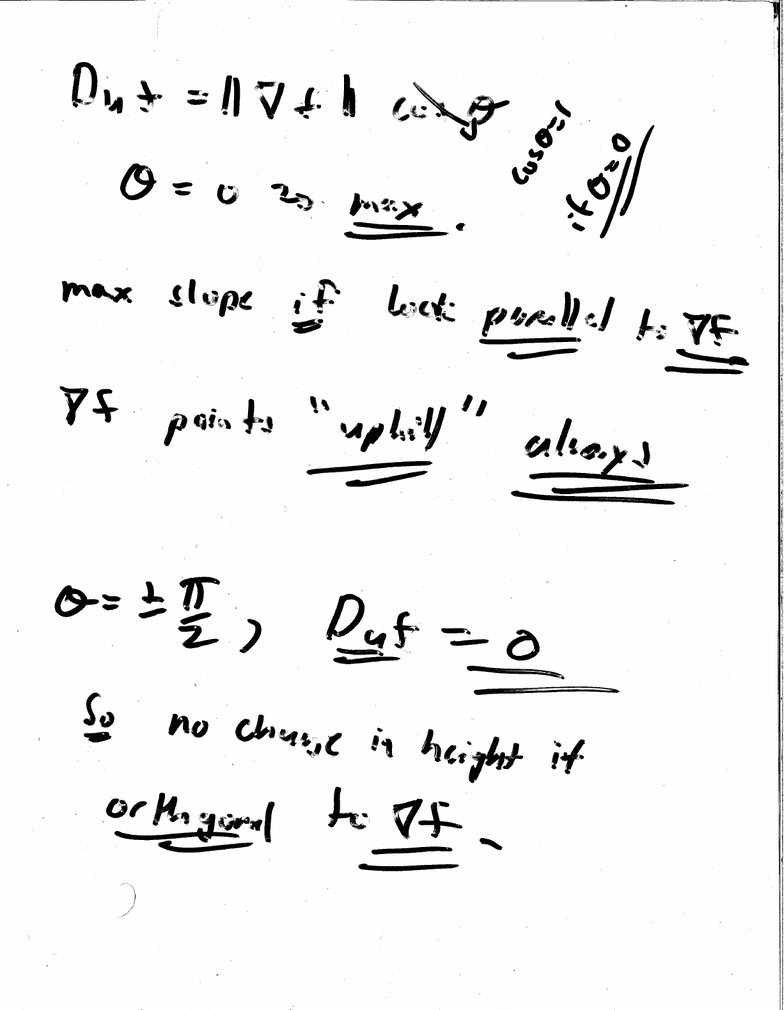 D_u f = ‖∇f‖ cos θ
cos θ = 1
if θ = 0
θ = 0 so max.
max slope if look parallel to ∇f
∇f points "uphill" always
θ = ± π/2, D_u f = 0
So no change in height if
orthogonal to ∇f.